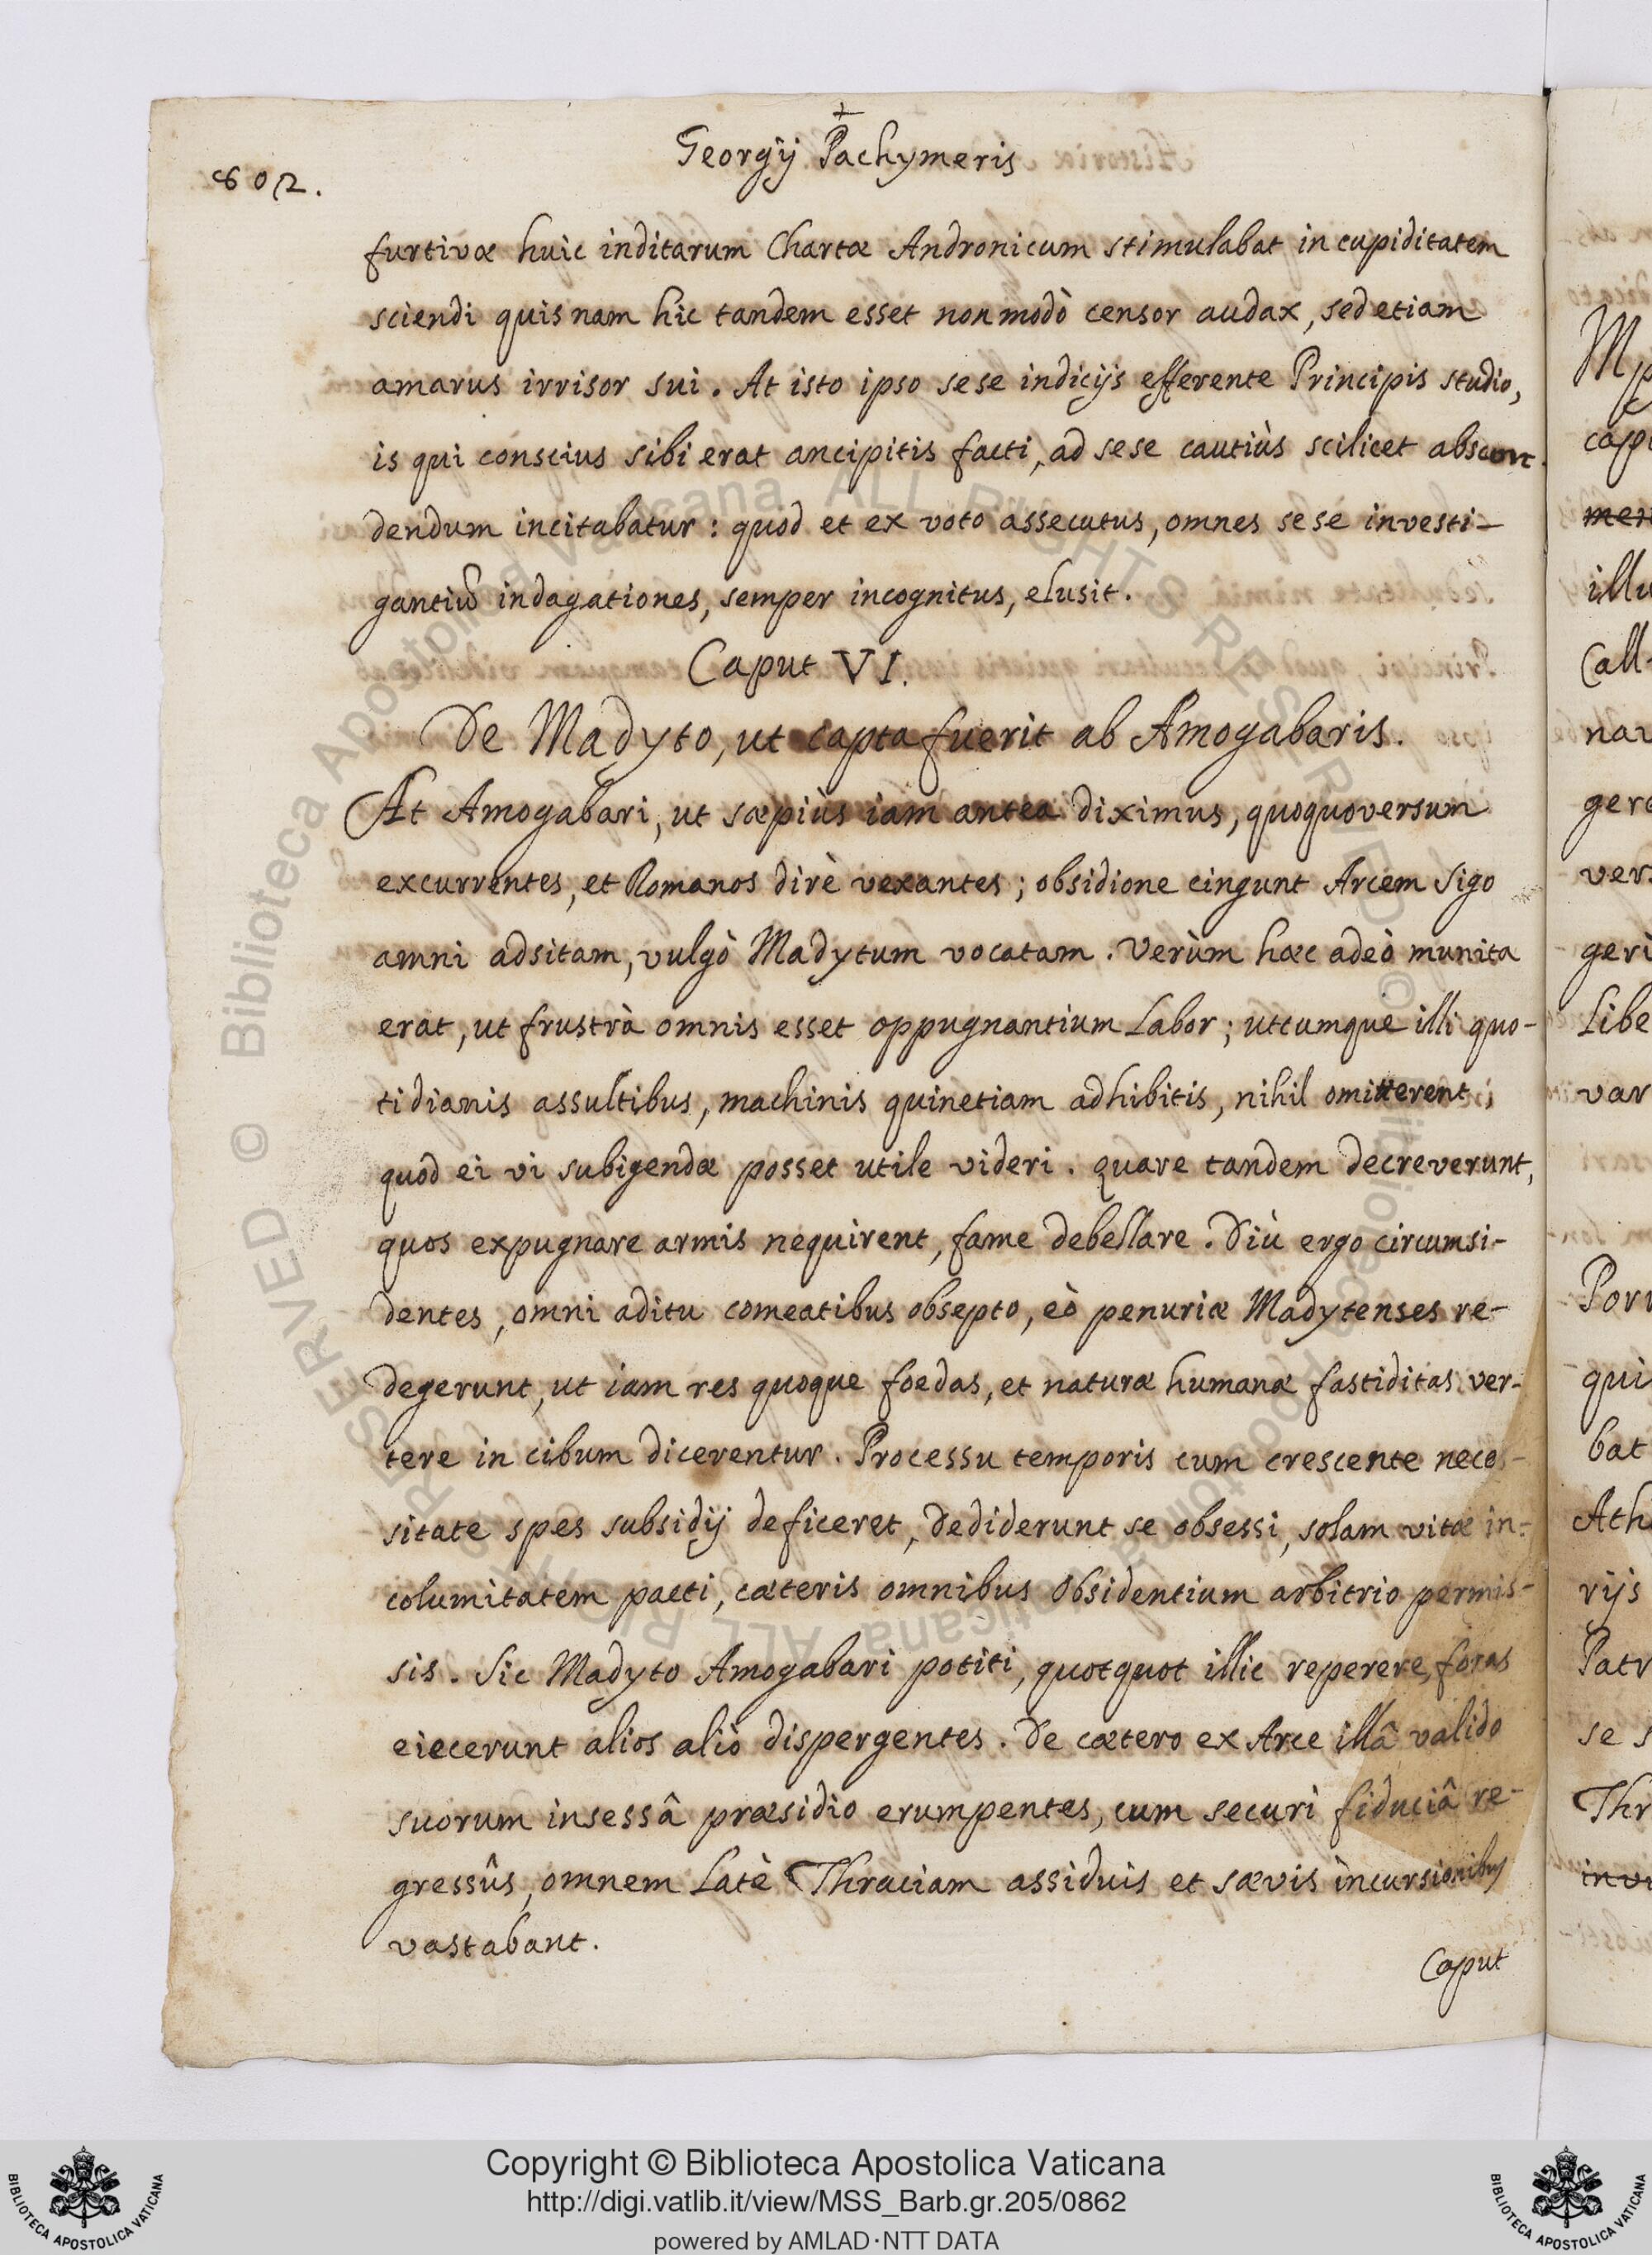 Georgÿ Pachymeris
802.
furtivæ huic inditarum Chartæ Andronicum stimulabat in cupiditatem
sciendi quisnam hic tandem esset non modò censor audax, sed etiam
amarus irrisor sui. At isto ipso sese indicijs efferente Principis studio,
is qui conscius sibi erat ancipitis facti, ad sese cautiùs scilicet abscon-
dendum incitabatur: quod et ex voto assecutus, omnes sese investi-
gantiũ indagationes, semper incognitus, elusit.
Caput VI.
De Madyto, ut capta fuerit ab Amogabaris.
At Amogabari, ut sæpiùs iam antea diximus, quoquoversum
excurrentes, et Romanos dirè vexantes; obsidione cingunt Arcem Sigo
amni adsitam, vulgò Madytum vocatam. Verùm hæc adeò munita
erat, ut frustrà omnis esset oppugnantium Labor; utcumque illi quo-
tidianis assultibus, machinis quinetiam adhibitis, nihil omitterent,
quod ei vi subigendæ posset utile videri. quare tandem decreverunt,
quos expugnare armis nequirent, fame debellare. Diù ergo circumsi-
dentes, omni aditu comeatibus obsepto, eò penuriæ Madytenses re-
degerunt, ut iam res quoque foedas, et naturæ humanæ fastiditas ver-
tere in cibum dicerentur. Processu temporis cum crescente neces-
sitate spes subsidij deficeret, dediderunt se obsessi, solam vitæ in-
columitatem pacti, cæteris omnibus Obsidentium arbitrio permis-
sis. Sic Madyto Amogabari potiti, quotquot illic reperere, foras
eiecerunt alios aliò dispergentes. De cætero ex Arce illâ valido
suorum insessâ præsidio erumpentes, cum securi fiduciâ re-
gressûs, omnem Latè Thraciam assiduis et sævis incursionibus
vastabant.
Caput
Copyright © Biblioteca Apostolica Vaticana
http://digi.vatlib.it/view/MSS_Barb.gr.205/0862
powered by AMLAD·NTT DATA
BIBLIOTECA APOSTOLICA VATICANA
BIBLIOTECA APOSTOLICA VATICANA